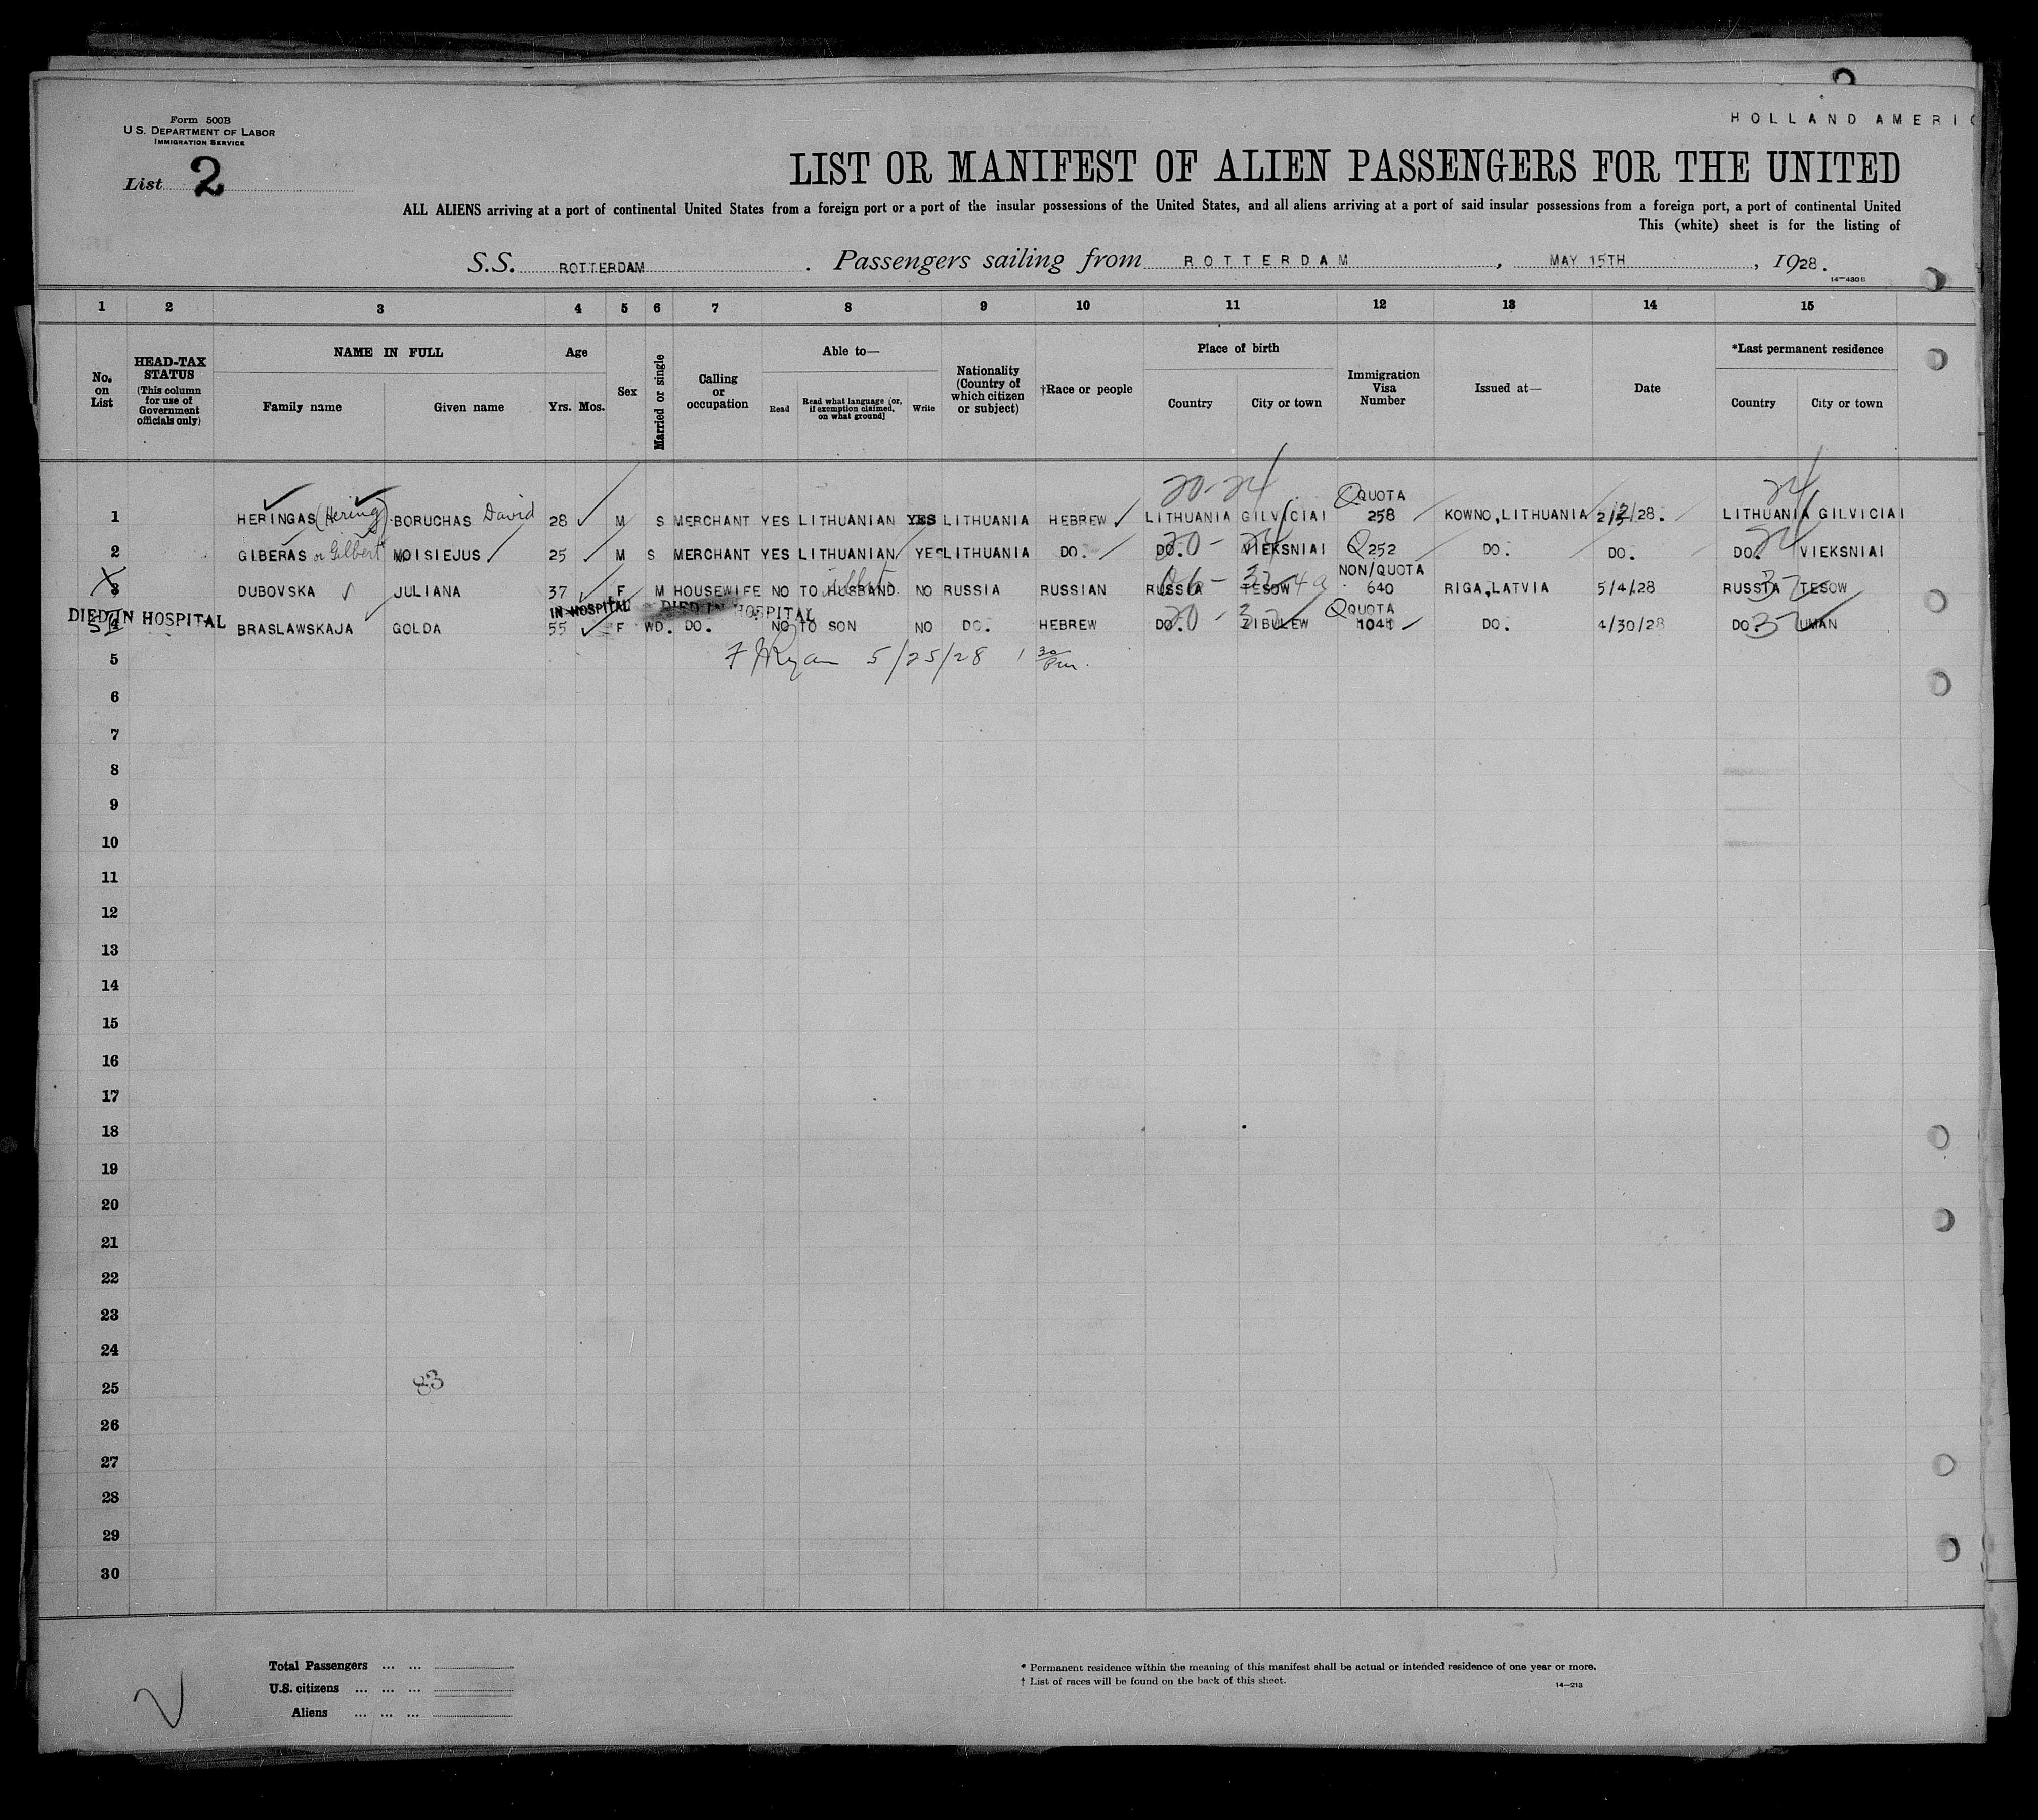 Form 500B
U.S. DEPARTMENT OF LABOR
IMMIGRATION SERVICE
HOLLAND AMERIC
List 2
LIST OR MANIFEST OF ALIEN PASSENGERS FOR THE UNITED
ALL ALIENS arriving at a port of continental United States from a foreign port or a port of the insular possessions of the United States, and all aliens arriving at a port of said insular possessions from a foreign port, a port of continental United
This (white) sheet is for the listing of
S.S. ROTTERDAM. Passengers sailing from ROTTERDAM, MAY 15TH, 1928.
14-430B
1 2 3 4 5 6 7 8 9 10 11 12 13 14 15
No. on List
HEAD-TAX STATUS (This column for use of Government officials only)
NAME IN FULL
Family name Given name
Age
Yrs. Mos.
Sex
Married or single
Calling or occupation
Able to—
Read
Read what language (or, if exemption claimed, on what ground)
Write
Nationality (Country of which citizen or subject)
†Race or people
Place of birth
Country City or town
Immigration Visa Number
Issued at—
Date
*Last permanent residence
Country City or town
20-24 24
1 HERINGAS (Hering) BORUCHAS David 28 M S MERCHANT YES LITHUANIAN YES LITHUANIA HEBREW LITHUANIA GILVICIAI Q QUOTA 258 KOWNO, LITHUANIA /28. LITHUANIA GILVICIAI
2 GIBERAS or Gilbert MOISIEJUS 25 M S MERCHANT YES LITHUANIAN YES LITHUANIA DO. DO. 20-24 VIEKSNIAI Q 252 DO. DO. DO. 24 VIEKSNIAI
3 DUBOVSKA JULIANA 37 F M HOUSEWIFE NO TO HUSBAND NO RUSSIA RUSSIAN RUSSIA TESOW NON/QUOTA 640 RIGA, LATVIA 5/4/28 RUSSIA TESOW
DIED IN HOSPITAL IN HOSPITAL DIED IN HOSPITAL
4 BRASLAWSKAJA GOLDA 55 F WD. DO. NO TO SON NO DO. HEBREW DO. 20-32 ZIBULEW Q QUOTA 1041 DO. 4/30/28 DO. UMAN
5 Ryan 5/25/28 1 30 Pm.
6
7
8
9
10
11
12
13
14
15
16
17
18
19
20
21
22
23
24
25 83
26
27
28
29
30
Total Passengers ... ...
U.S. citizens ... ... ...
Aliens ... ... ...
* Permanent residence within the meaning of this manifest shall be actual or intended residence of one year or more.
† List of races will be found on the back of this sheet.
14-213